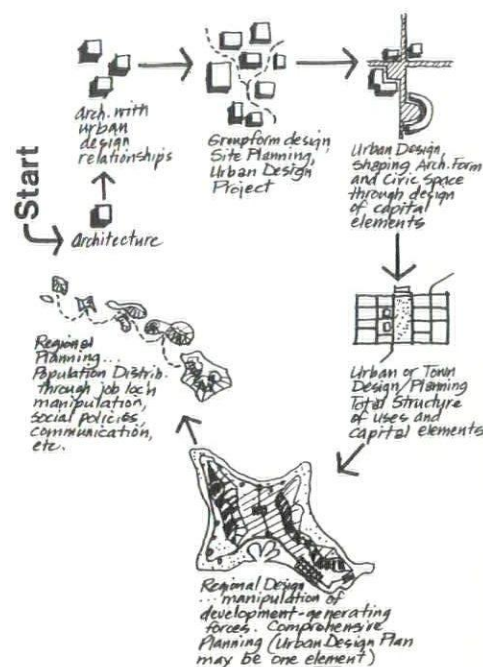 Start
Architecture
Arch. with
urban
design
relationships
Groupform design,
Site Planning,
Urban Design
Project
Urban Design,
shaping Arch. Form
and Civic Space
through design
of capital
elements
Urban or Town
Design/Planning
Total Structure
of uses and
capital elements
Regional Design
... manipulation of
development-generating
forces. Comprehensive
Planning (Urban Design Plan
may be one element)
Regional
Planning...
Population Distrib.
through job loc'n
manipulation,
social policies,
communication,
etc.